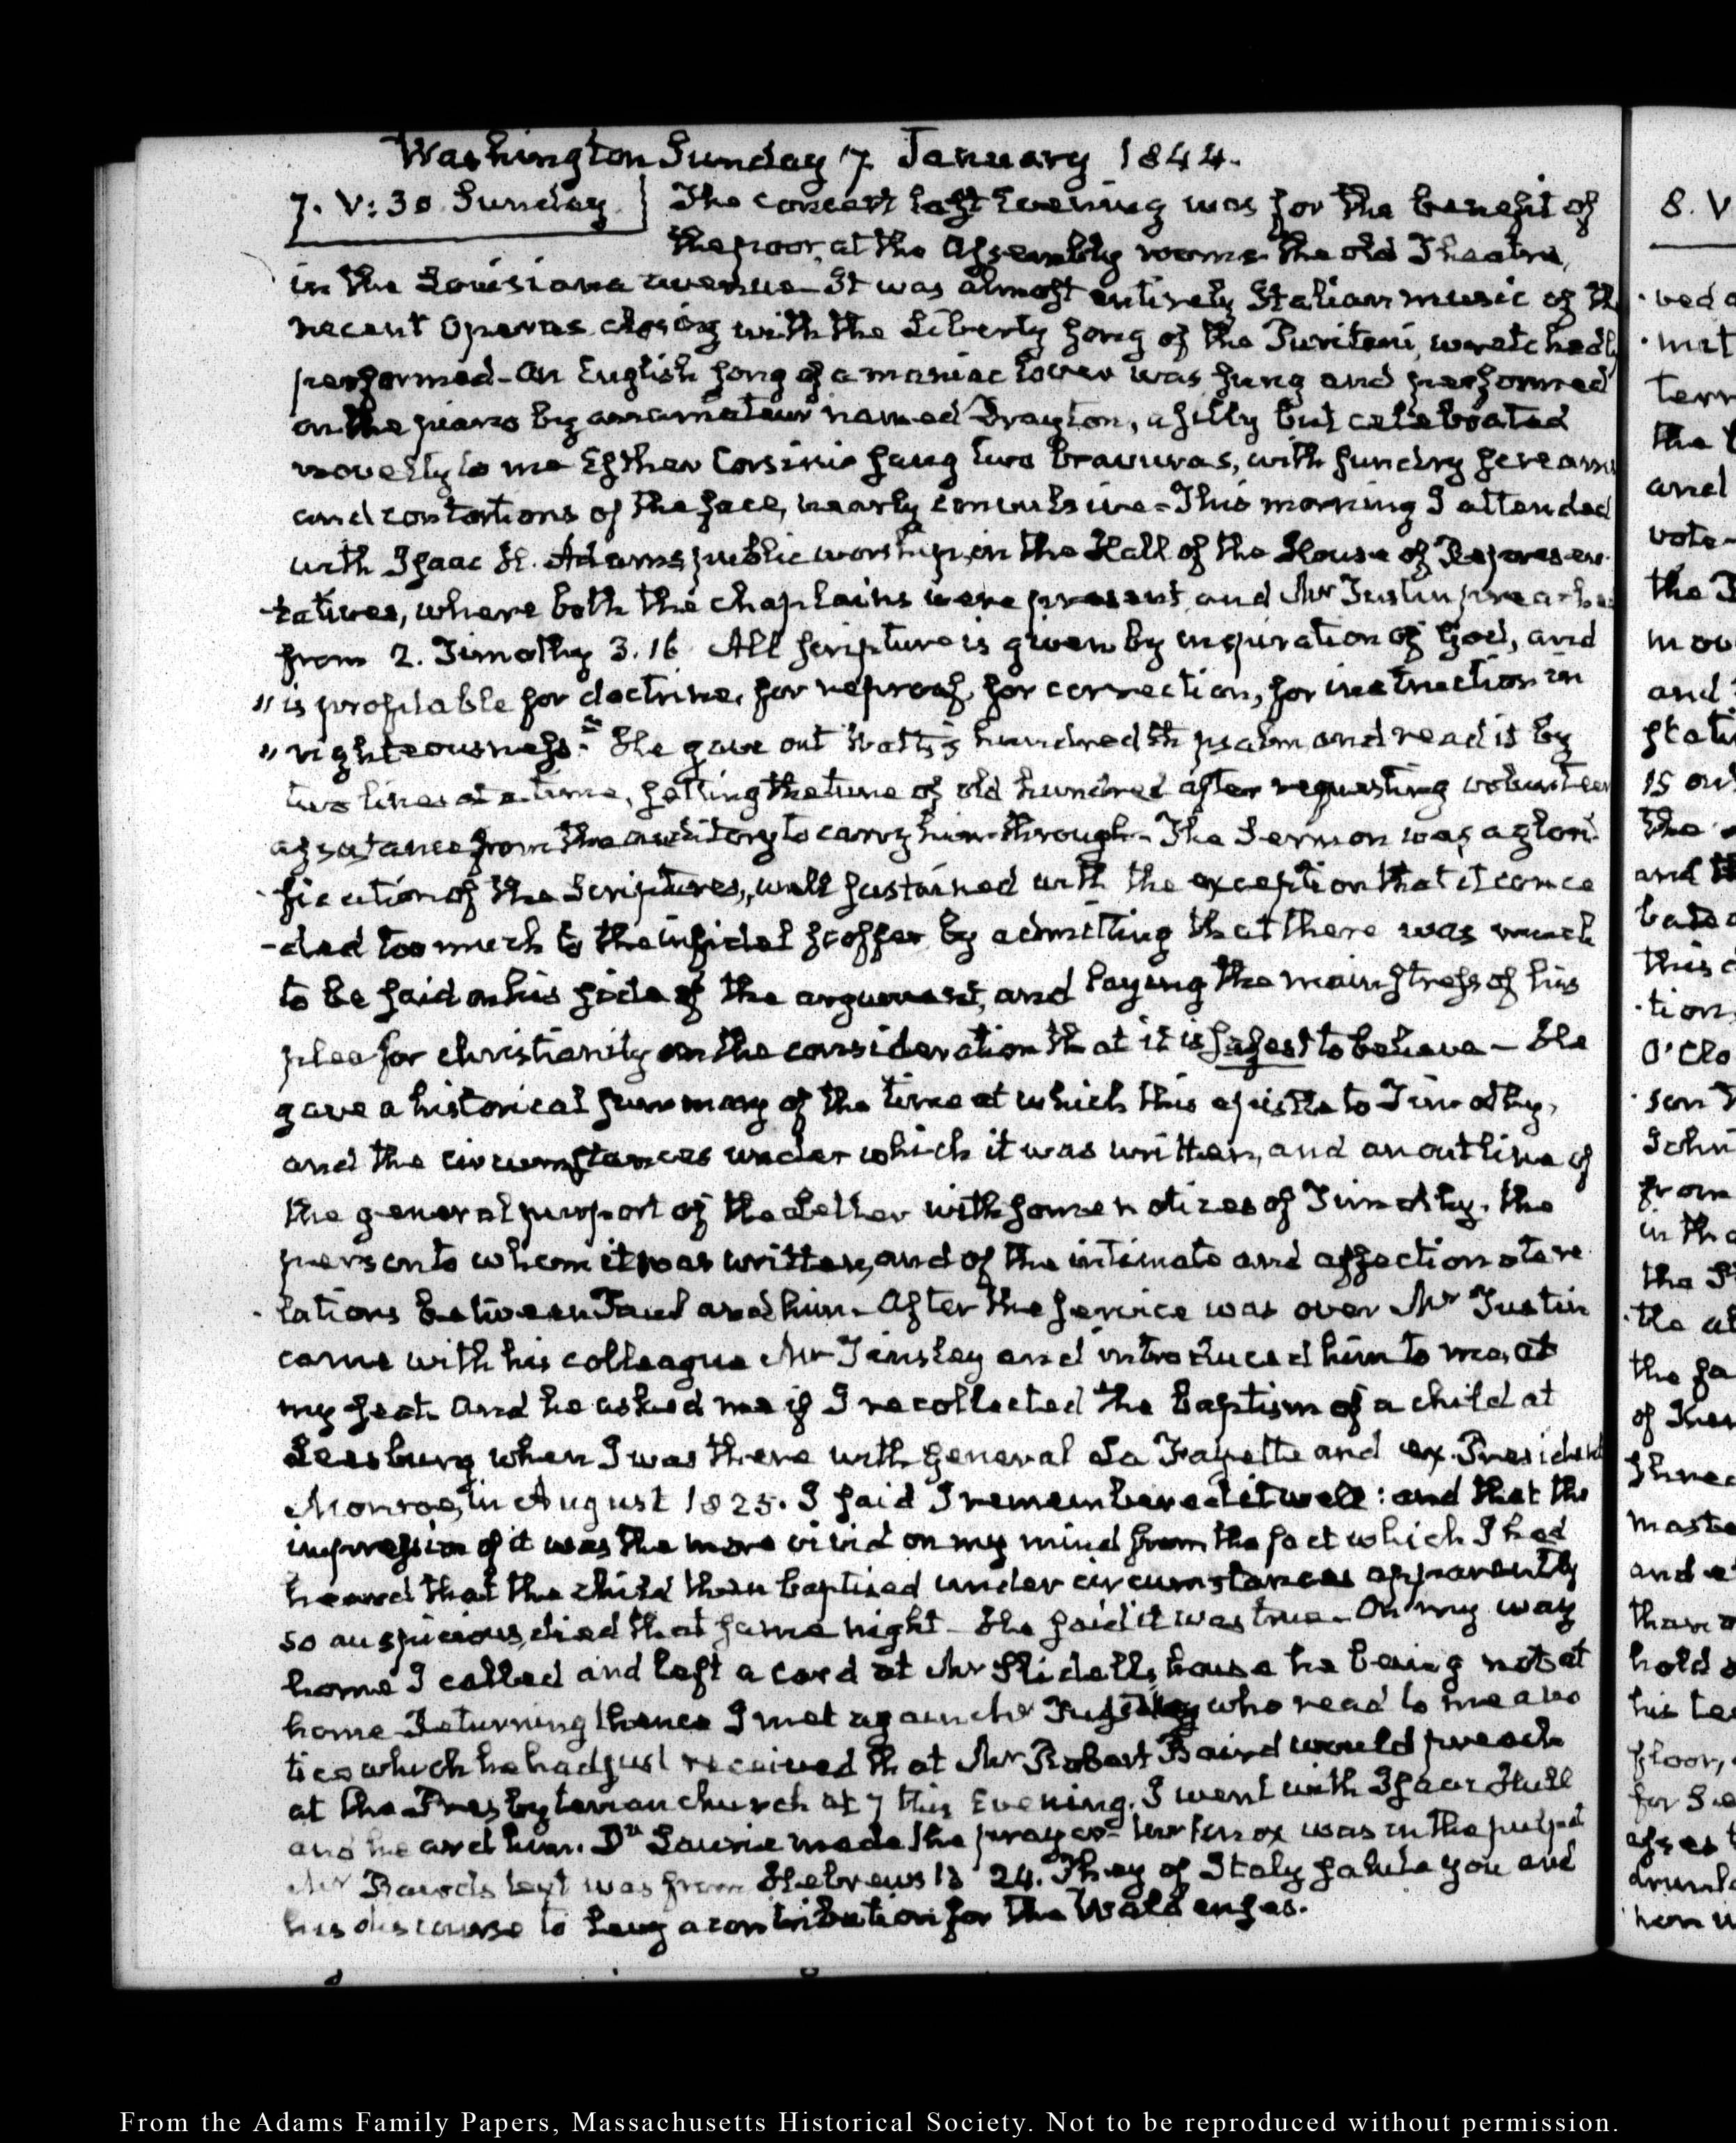 Washington Sunday 7 January 1844.
7. V:30 Sunday
The concert last Evening was for the benefit of
the poor, at the Assembly rooms the old Theatre,
in the Louisiana avenue - It was almost entirely Italian music of the
recent Operas closing with the Liberty song of the Puritani, wretchedly
performed - An English song of a maniac lover was sung and performed
on the piano by an amateur named Drayton, a silly but celebrated
novelty to me Esther Corsini sang two bravuras, with sundry screams
and contortions of the face, nearly convulsive - This morning I attended
with Isaac H. Adams, public worship, in the Hall of the House of Represen-
-tatives, where both the chaplains were present, and Mr Tustin preached
from 2. Timothy 3.16 All scripture is given by inspiration of God, and
" is profitable for doctrine, for reproof, for correction, for instruction in
" righteousness." He gave out Watts's hundredth psalm and read it by
two lines at a time, setting the tune of old hundred after requesting volunteer
assistance from the auditory to carry him through - The Sermon was a glori-
-fication of the Scriptures, well sustained with the exception that it conce
-ded too much to the infidel scoffer by admitting that there was much
to be said on his side of the argument, and laying the main stress of his
plea for christianity on the consideration that it is safest to believe - He
gave a historical summary of the time at which this epistle to Timothy,
and the circumstances under which it was written, and an outline of
the general purport of the Letter with some notices of Timothy, the
person to whom it was written, and of the intimate and affectionate re
-lations between Paul and him - After the service was over Mr Tustin
came with his colleague Mr Tinsley and introduced him to me, at
my seat. And he asked me if I recollected the baptism of a child at
Leesburg when I was there with General La Fayette and ex. President
Monroe, in August 1825. I said I remembered it well: and that the
impression of it was the more vivid on my mind from the fact which I had
heard that the child then baptised under circumstances apparently
so auspicious, died that same night - He said it was true - On my way
home I called and left a card at Mr Slidell's house he being not at
home - Returning thence I met again Mr who read to me a no
tice which he had just received that Mr Robert Baird would preach
at the Presbyterian church at 7 this Evening. I went with Isaac Hull
and heard him. Dr Laurie made the prayer - Mr Knox was in the pulpit
Mr Baird's text was from Hebrews 13 24. They of Italy salute you and
his discourse to levy a contribution for the Waldenses.
8. V
ved
mit
terr
the
and
vote-
the
mov
and
stati
15
the
and
bate
this
tion
O'Clo
son
John
from
in the
the
the
the
of
three
maste
and
than
hold
his
floor,
for
asses
drunk
hon
From the Adams Family Papers, Massachusetts Historical Society. Not to be reproduced without permission.